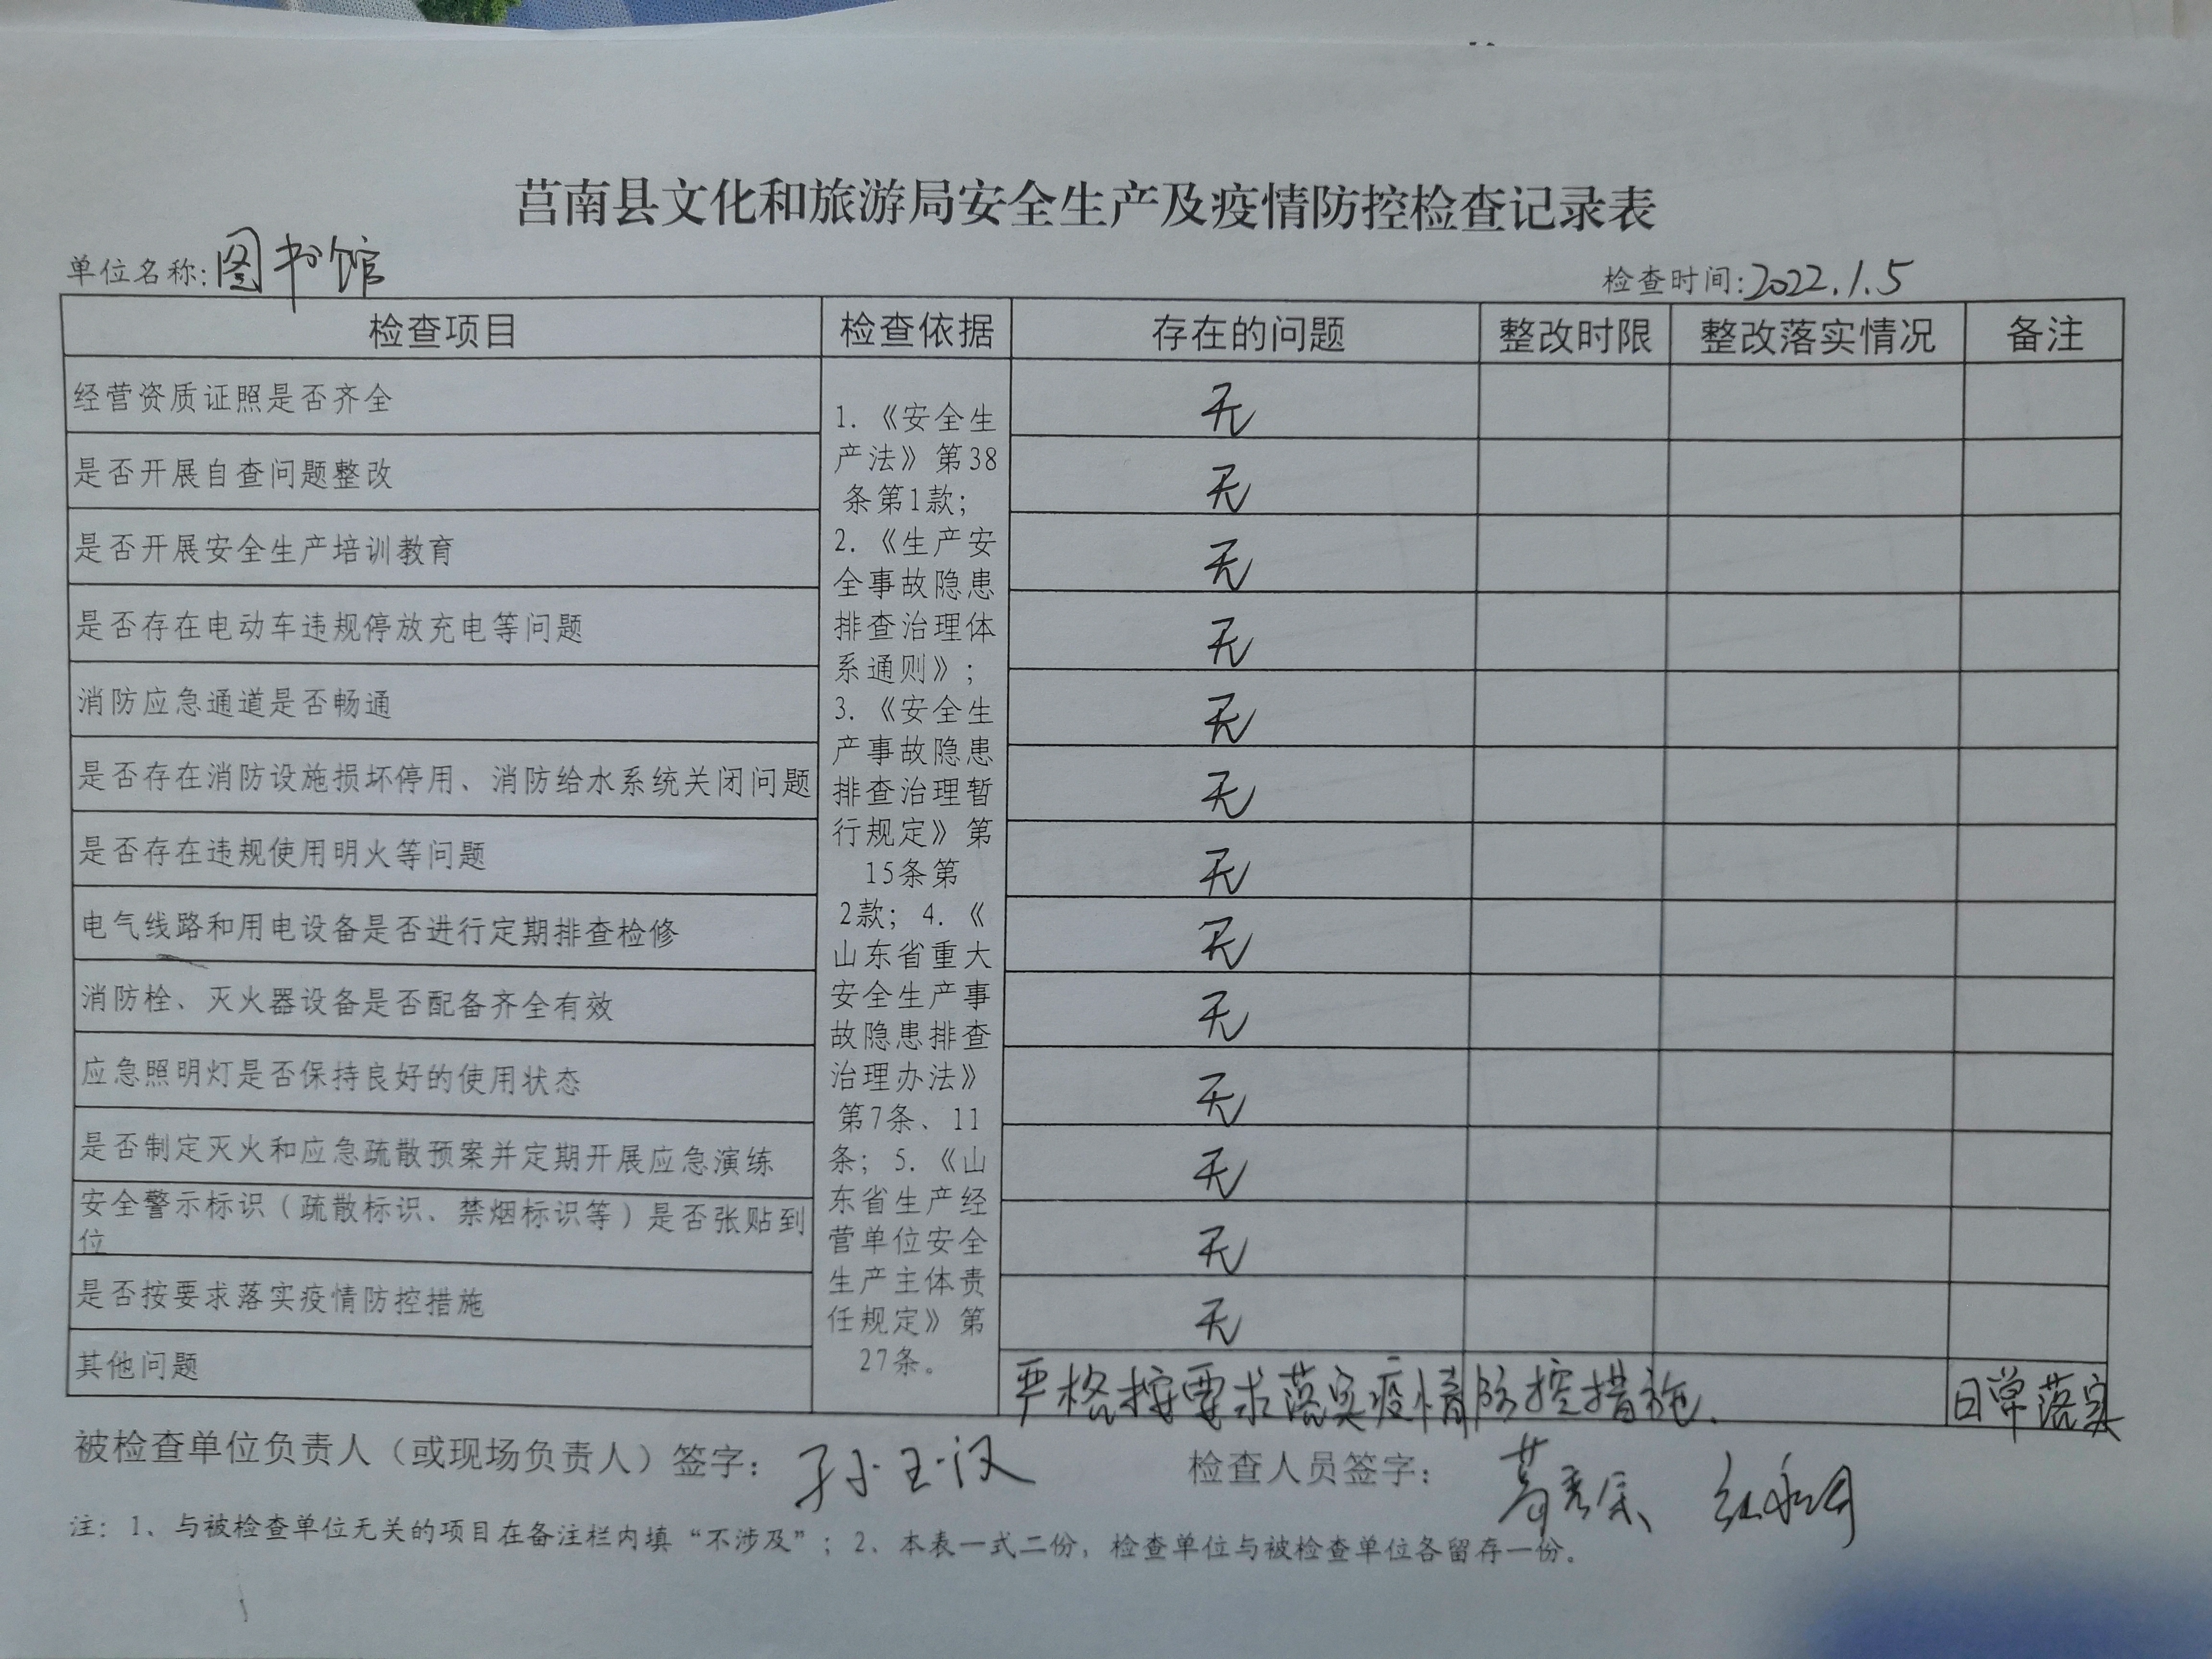 莒南县文化和旅游局安全生产及疫情防控检查记录表
单位名称:图书馆 检查时间:2022.1.5
检查项目 检查依据 存在的问题 整改时限 整改落实情况 备注
经营资质证照是否齐全 无
是否开展自查问题整改 无
是否开展安全生产培训教育 无
是否存在电动车违规停放充电等问题 无
消防应急通道是否畅通 无
是否存在消防设施损坏停用、消防给水系统关闭问题 无
是否存在违规使用明火等问题 无
电气线路和用电设备是否进行定期排查检修 无
消防栓、灭火器设备是否配备齐全有效 无
应急照明灯是否保持良好的使用状态 无
是否制定灭火和应急疏散预案并定期开展应急演练 无
安全警示标识(疏散标识、禁烟标识等)是否张贴到
位 无
是否按要求落实疫情防控措施 无
其他问题 严格按要求落实疫情防控措施. 日常落实
1.《安全生
产法》第38
条第1款;
2.《生产安
全事故隐患
排查治理体
系通则》;
3.《安全生
产事故隐患
排查治理暂
行规定》第
15条第
2款; 4.《
山东省重大
安全生产事
故隐患排查
治理办法》
第7条、11
条; 5.《山
东省生产经
营单位安全
生产主体责
任规定》第
27条。
被检查单位负责人(或现场负责人)签字: 孙玉汉 检查人员签字:
注: 1、与被检查单位无关的项目在备注栏内填“不涉及”; 2、本表一式二份,检查单位与被检查单位各留存一份。